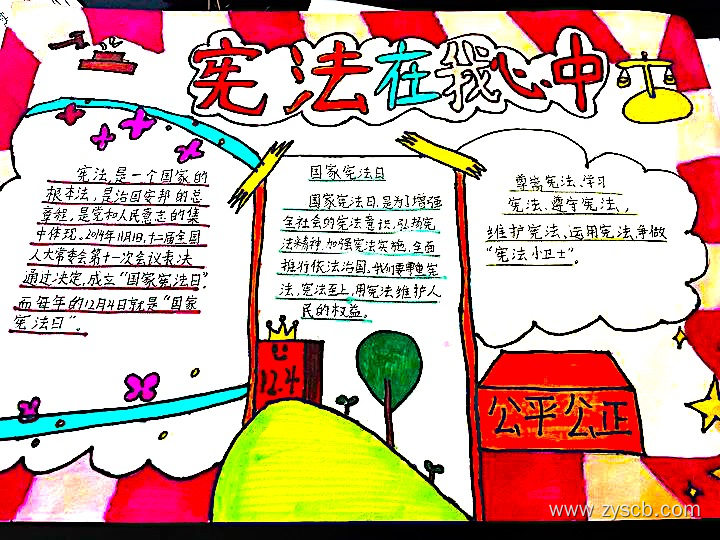 宪法在我心中
宪法,是一个国家的
根本法,是治国安邦的总
章程,是党和人民意志的集
中体现。2014年11月1日,十二届全国
人大常委会第十一次会议表决
通过决定,成立“国家宪法日”。
而每年的12月4日就是“国家
宪法日”。
国家宪法日
国家宪法日,是为了增强
全社会的宪法意识,弘扬宪
法精神,加强宪法实施,全面
推行依法治国。我们要尊重宪
法,宪法至上,用宪法维护人
民的权益。
12.4
尊崇宪法、学习
宪法、遵守宪法,
维护宪法、运用宪法,争做
“宪法小卫士”。
公平公正
www.zyscb.com